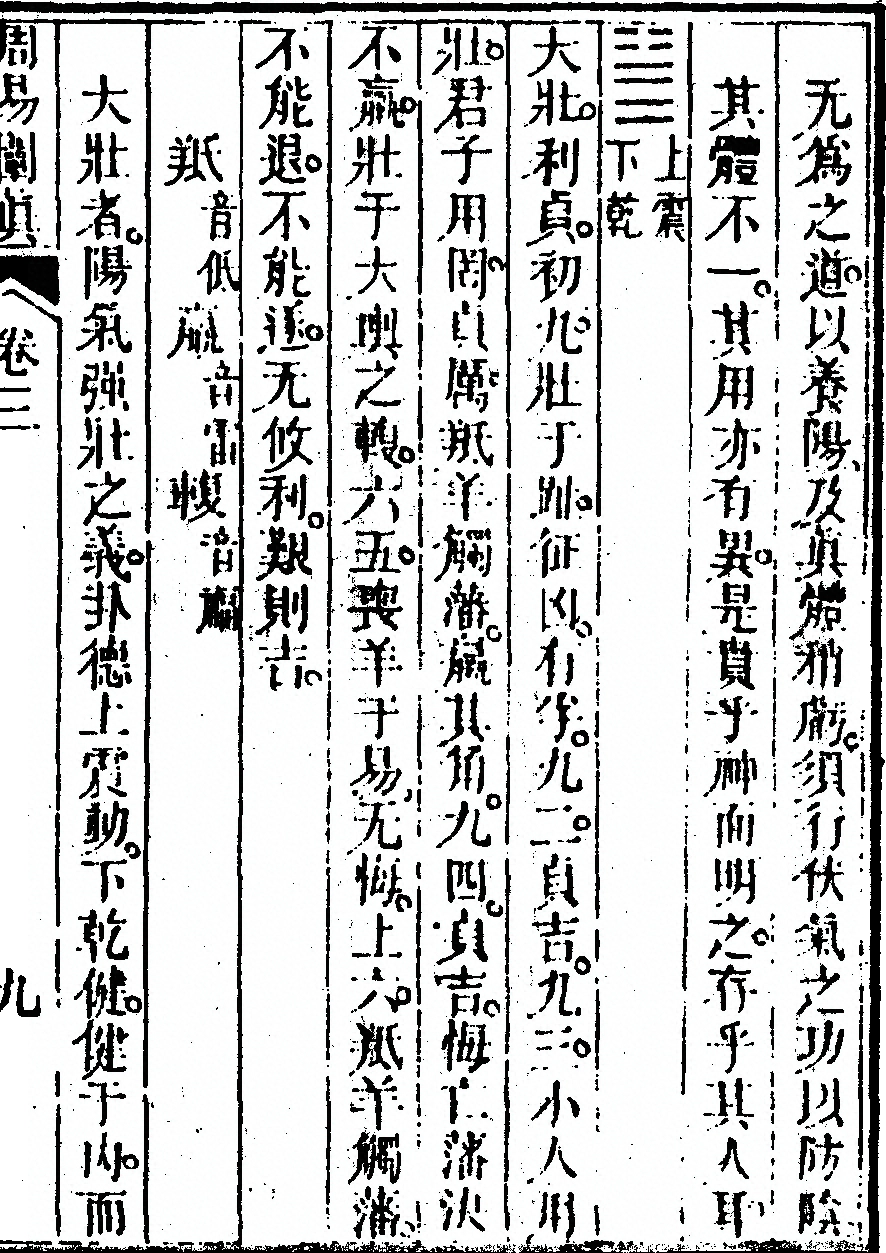 无爲之道以養陽及眞體稍虧須行伏氣之功以防陰
其體不一其用亦有異是貴乎神而明之存乎其人耳
䷡ 上震 下乾
大壯利貞初九壯于趾征凶有孚九二貞吉九三小人用
壯君子用罔貞厲羝羊觸藩羸其角九四貞吉悔亡藩決
不羸壯于大輿之輹六五喪羊于易无悔上六羝羊觸藩
不能退不能遂无攸利艱則吉
羝音低羸音雷輹音福
大壯者陽氣强壯之義卦德上震動下乾健健于內而
周易闡眞 卷三 九